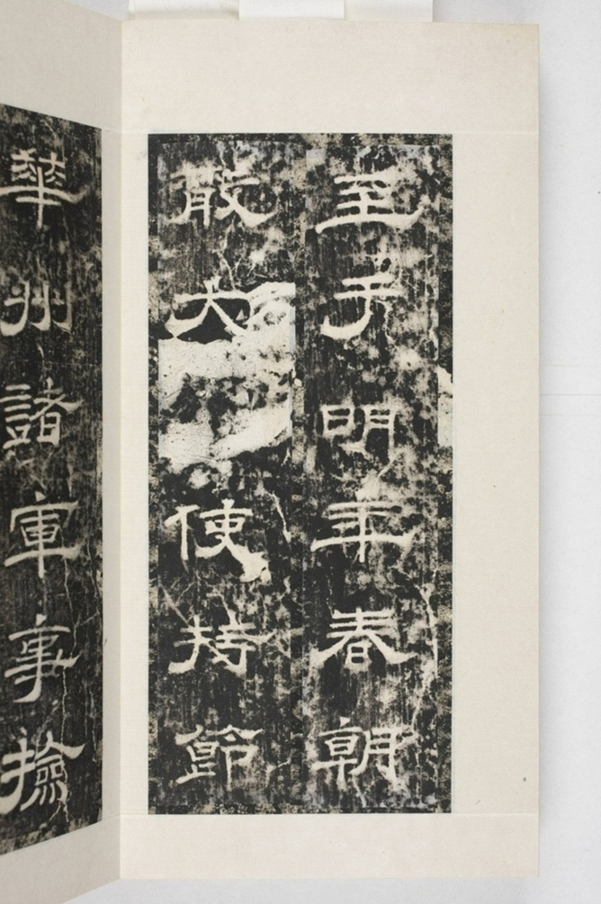 至于明年春朝
散大使持節
華州諸軍事撿